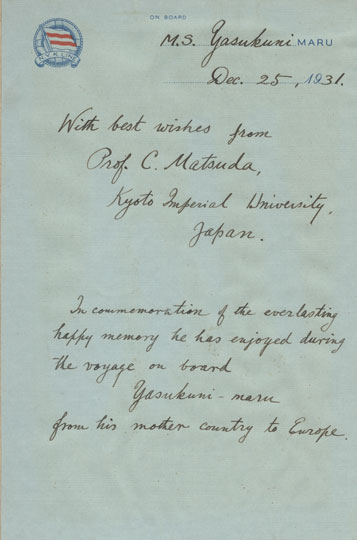 ON BOARD
N.Y.K. LINE
M.S. Yasukuni MARU
Dec. 25, 1931.
With best wishes from
Prof. C. Matsuda,
Kyoto Imperial University,
Japan.
In commemoration of the everlasting
happy memory he has enjoyed during
the voyage on board
Yasukuni-maru
from his mother country to Europe.